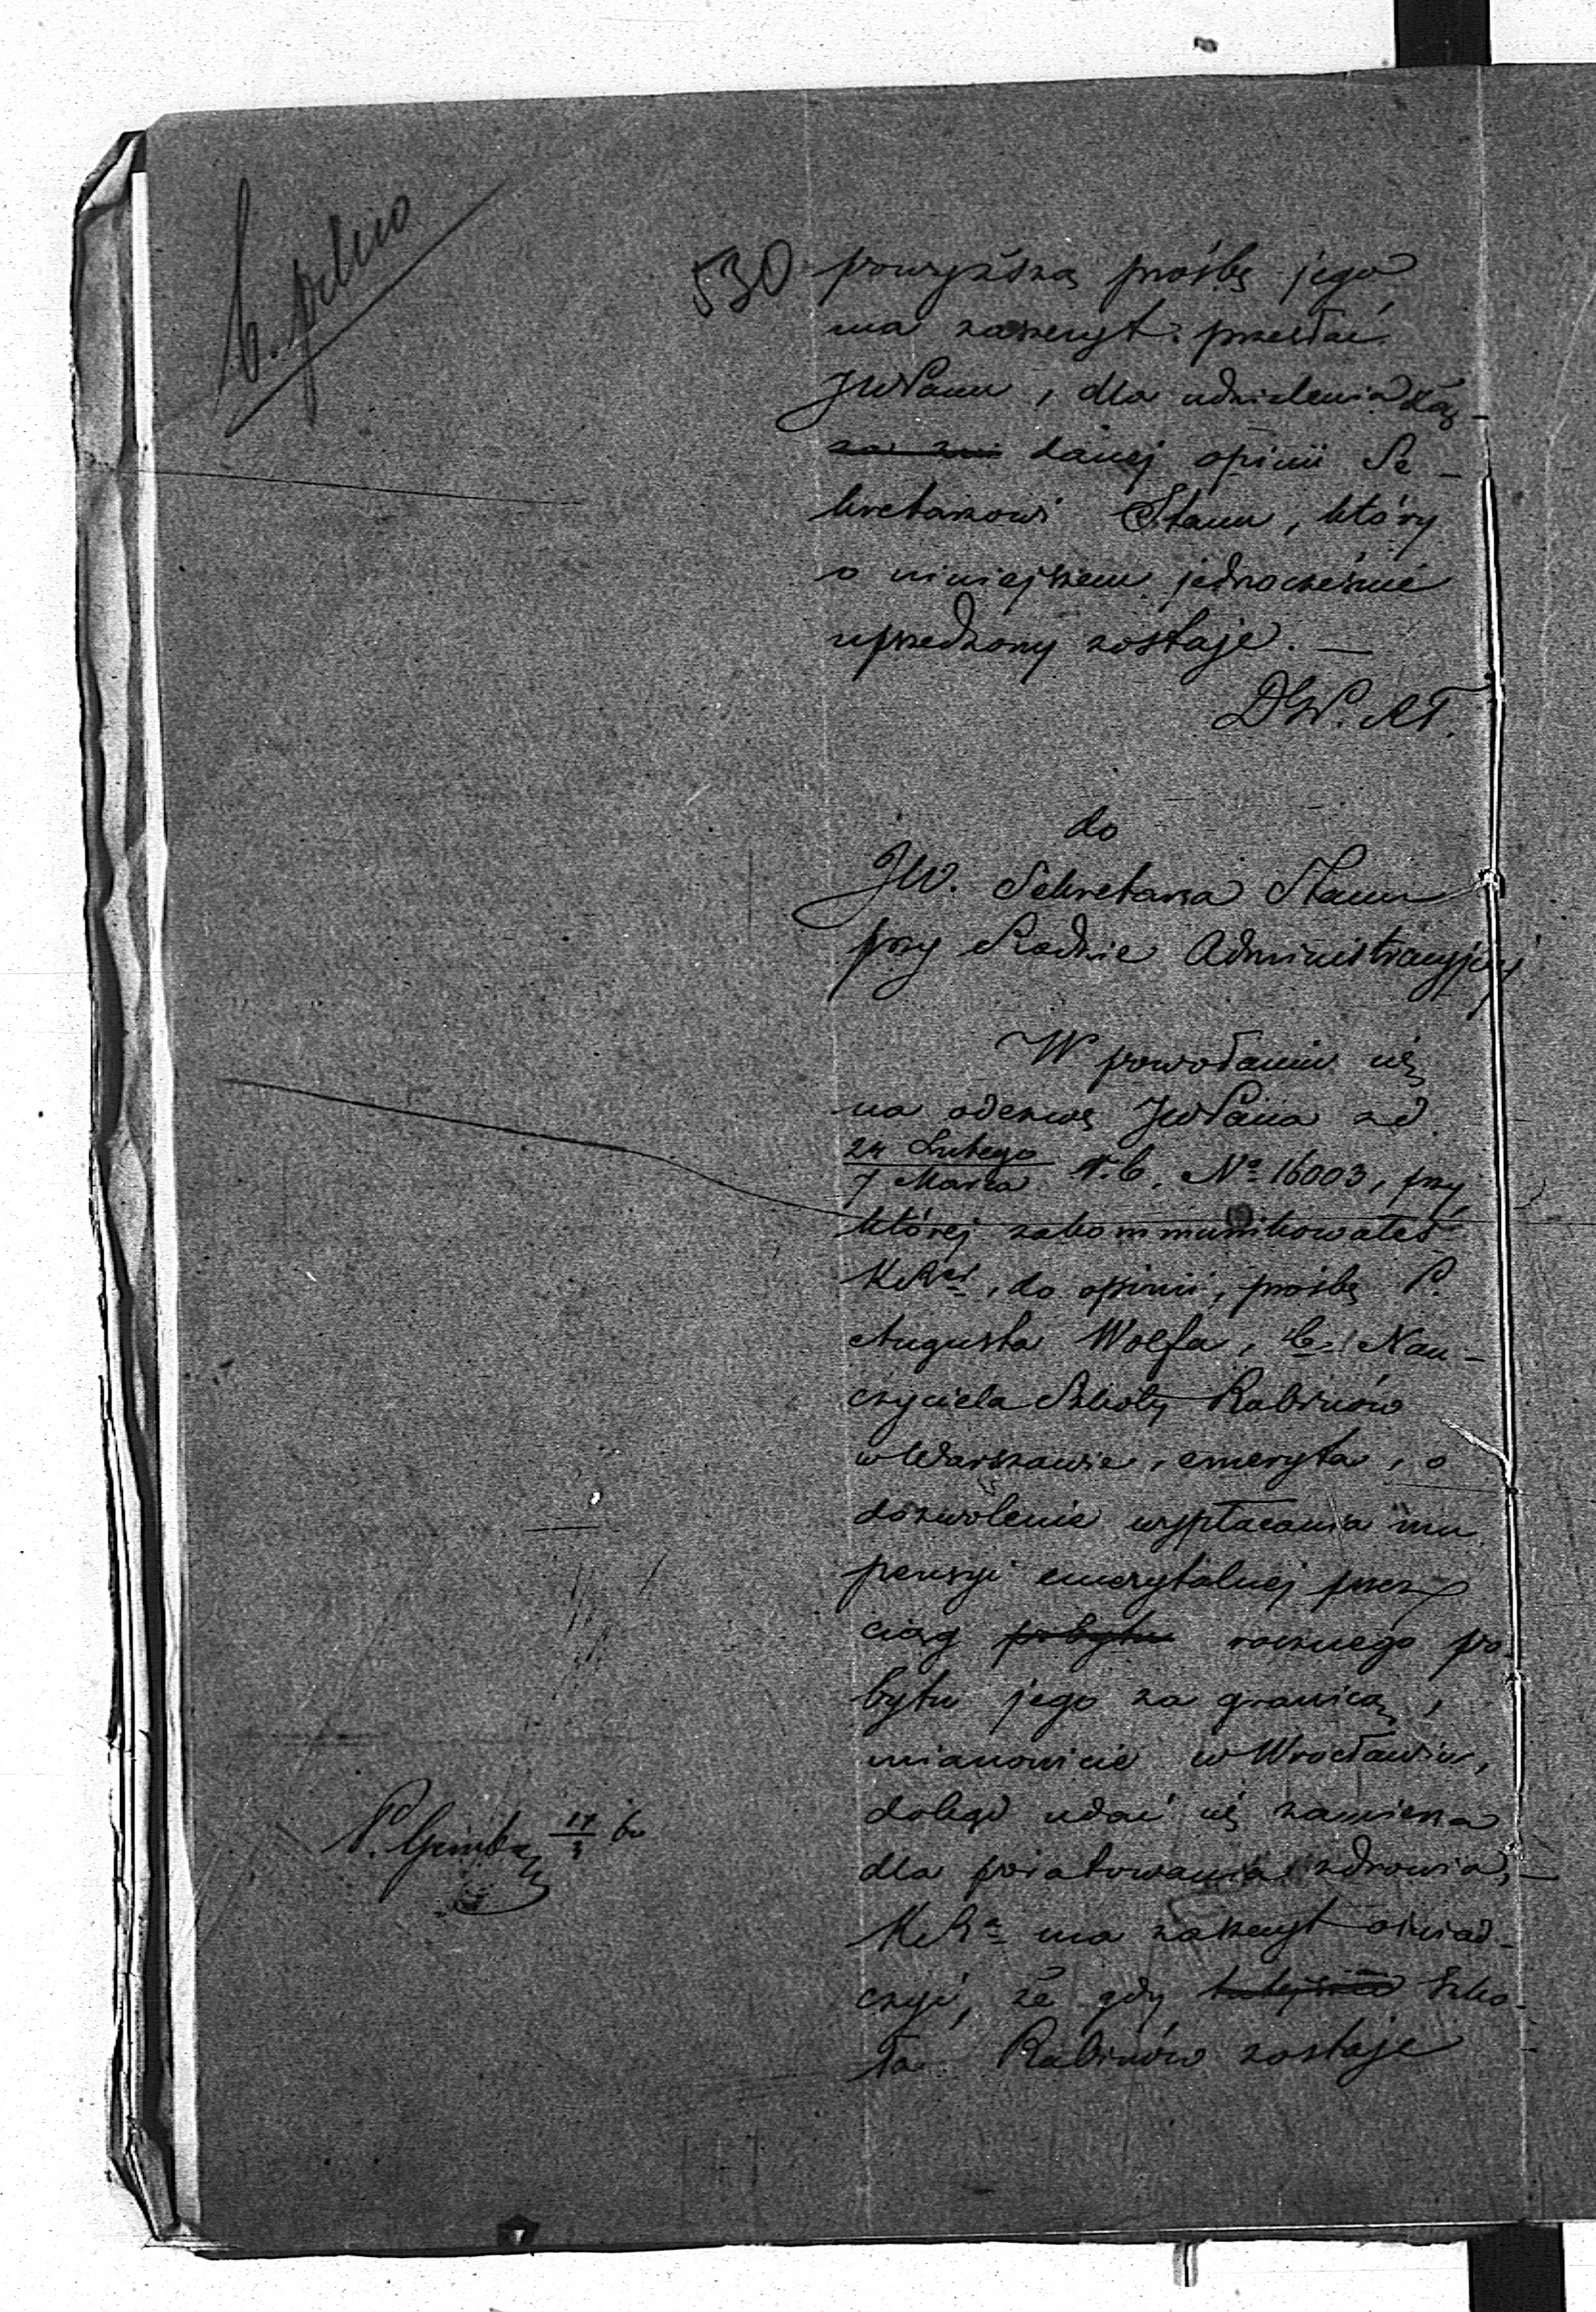 530
powyższą prośbę jego
ma zaszczyt przesłać
JWPanu, dla udzielenia żą-
danej opinii Se-
kretarzowi Stanu, który
o niniejszem jednocześnie
uprzedzony zostaje. —
do
JW. Sekretarza Stanu
przy Radzie Administracyjnej
W powołaniu się
na odezwę JWPana z d.
24 Lutego
7 Marca r. b. Nº 16003, przy
której zakommunikowałeś
do opinii, prośbę P.
Augusta Wolfa, b. Nau-
czyciela Szkoły Rabinów
w Warszawie, emeryta, o
dozwolenie wypłacania mu
pensyi emerytalnej przez
ciąg pobytu rocznego po-
bytu jego za granicą,
mianowicie w Wrocławiu,
dokąd udać się zamierza
dla poratowania zdrowia, —
ma zaszczyt oświad-
czyć, że gdy tutejsza Szko-
ła Rabinów zostaje